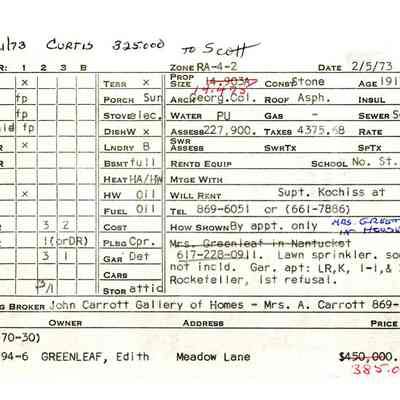 1/73 CURTIS 325000 TO Scott
R: 1 2 3 B ZONE RA-4-2 DATE 2/5/73
x TERR x PROP SIZE 14.903A 14.493 CONST Stone AGE 191
fp PORCH Sun ARCH Georg.Col. ROOF Asph. INSUL
fp STOVE elec. WATER PU GAS - SEWER S
id fp DISHW x ASSESS 227,900. TAXES 4375.68 RATE
x LNDRY B SWR ASSESS SWRTX SPTX
x BSMT full RENTD EQUIP SCHOOL No. St.
HEAT HA/HW MTGE WITH
x HW Oil WILL RENT Supt. Kochiss at
FUEL Oil TEL 869-6051 or (661-7886)
3 2 COST HOW SHOWN By appt. only MRS. GREEN IN HOUSE
1(orDR) PLBG Cpr. Mrs. Greenleaf in Nantucket
3 1 GAR Det 617-228-0911. Lawn sprinkler. so
CARS not incld. Gar. apt: LR,K, 1-1,&
3/1 STOR attic Rockefeller, 1st refusal.
G BROKER John Carrott Gallery of Homes - Mrs. A. Carrott 869-
OWNER ADDRESS PRICE
70-30)
94-6 GREENLEAF, Edith Meadow Lane $450,000.
385.0